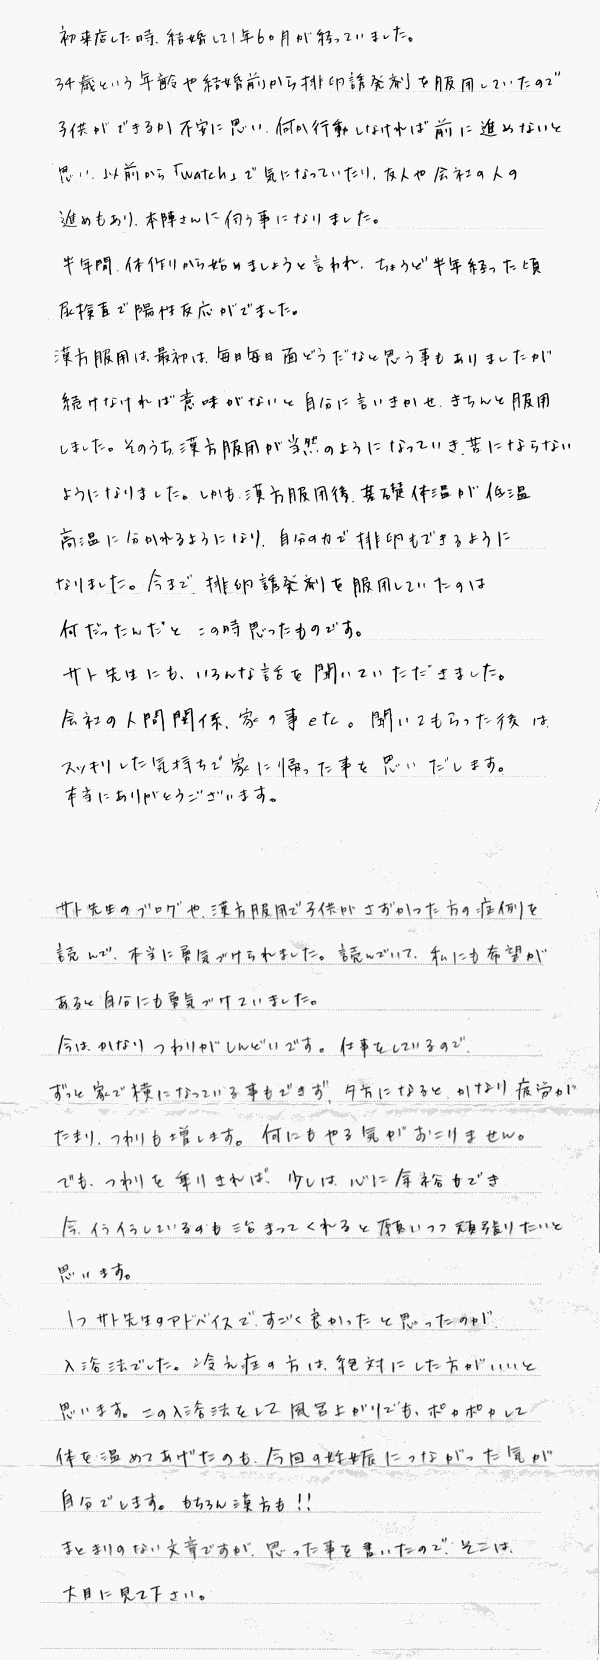 初来店した時、結婚して1年6ヶ月が経っていました。
34歳という年齢や結婚前から排卵誘発剤を服用していたので
子供ができるか不安に思い、何か行動しなければ前に進めないと
思い、以前から「Watch」で気になっていたり、友人や会社の人の
進めもあり、本陣さんに伺う事になりました。
半年間、体作りから始めましょうと言われ、ちょうど半年経った頃
尿検査で陽性反応がでました。
漢方服用は、最初は、毎日毎日面どうだなと思う事もありましたが
続けなければ意味がないと自分に言いきかせ、きちんと服用
しました。そのうち、漢方服用が当然のようになっていき、苦にならない
ようになりました。しかも、漢方服用後、基礎体温が低温
高温に分かれるようになり、自分の力で排卵もできるように
なりました。今まで、排卵誘発剤を服用していたのは
何だったんだと この時思ったものです。
サト先生にも、いろんな話を聞いていただきました。
会社の人間関係、家の事etc。聞いてもらった後は、
スッキリした気持ちで家に帰った事を思いだします。
本当にありがとうございます。
サト先生のブログや、漢方服用で子供がさずかった方の症例を
読んで、本当に勇気づけられました。読んでいて、私にも希望が
あると自分にも勇気づけていました。
今は、かなりつわりがしんどいです。仕事をしているので、
ずっと家で横になっている事もできず、夕方になると、かなり疲労が
たまり、つわりも増します。何にもやる気がおこりません。
でも、つわりを乗りきれば、少しは、心に余裕もでき
今、イライラしているのも治まってくれると願いつつ頑張りたいと
思います。
1つサト先生のアドバイスで、すごく良かったと思ったのが、
入浴法でした。冷え症の方は、絶対にした方がいいと
思います。この入浴法をして風呂上がりでも、ポカポカして
体を温めてあげたのも、今回の妊娠につながった気が
自分でします。もちろん漢方も!!
まとまりのない文章ですが、思った事を書いたので、そこは、
大目に見て下さい。